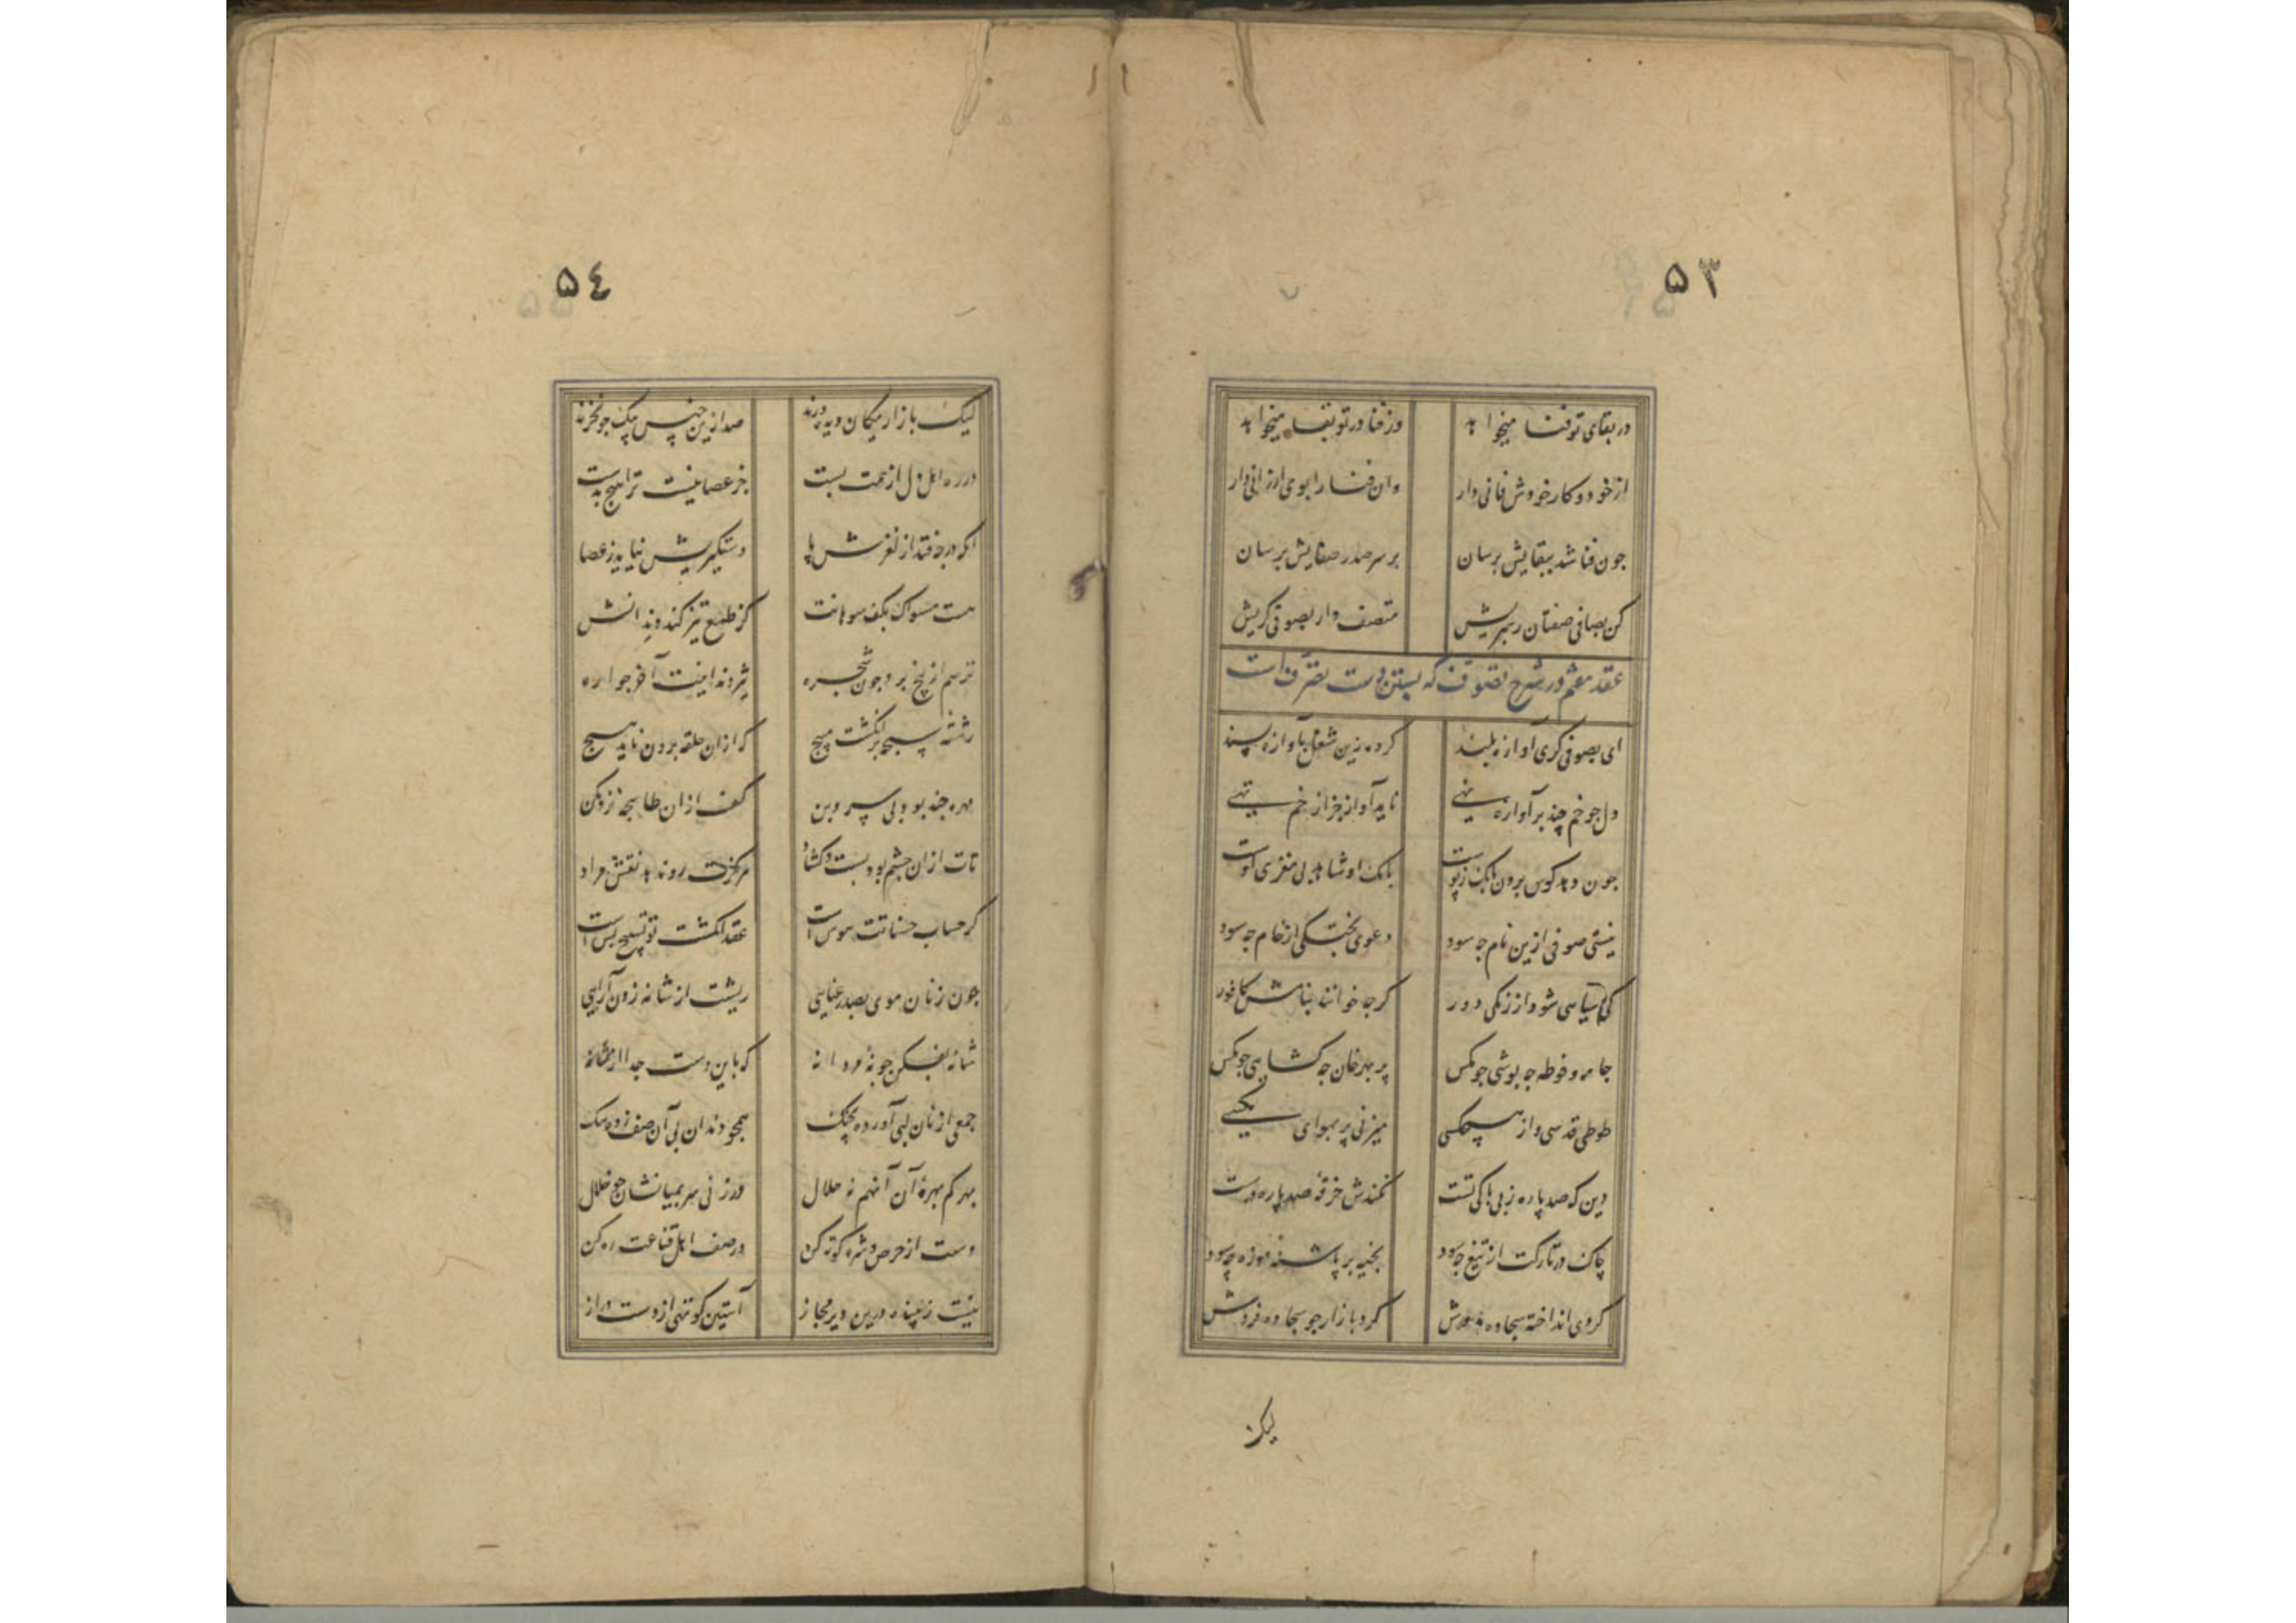 ۵۳
در بقای تو فنا میخواهد وز فنا در تو بقا میخواهد
از خود و کار خودش فانی دار وان فنا را بوی ارزانی دار
جون فنا شد ببقایش برسان بر سر صدر صفایش برسان
کن بصافی صفتان رهبریش متصف دار بصوفی کریش
عقد هفتم در شرح تصوف که بستن دست تصرف است
ای بصوفی کری آوازه بلند کرده زین شغل بآوازه پسند
دل جو خم چند بر آوازه نهی ناید آواز جز از خم تهی
جون دهد کوس برون بانک ز پوست بانک او شاهد بی مغزی اوست
نیستی صوفی ازین نام جه سود دعوی پختکی از خام جه سود
کی سیاهی شود از زنکی دور کرجا خوانند بنامش کافور
جامه و فوطه جه پوشی جو مکس پر بهر خان جه کشایی جو مکس
طوطی قدسی و از هیچکسی میزنی پر بهوای مکسی
دین که صد پاره ز بی باکی تست نکندش خرقه صد پاره درست
چاک در تارکت از تیغ چه سود بخیه بر پاشنه موزه چه سود
کردی انداخته سجاده بدوش کرد بازار جو سجاده فروش
لیک
۵٤
لیک بازار میکان دیه ورند صد ازین جنس بیک جو نخرند
در ره اهل دل از همت پست جز عصا نیست ترا هیچ بدست
آنکه در جه فتد از لغزش پا دستکیریش نیاید ز عصا
هست مسواک بکف سوهانت کز طمع تیز کند دندانش
ترسم از بیخ برد جون شجره
رشته سبحه بر انکشت مپیچ که ازان حلقه برون ناید هیچ
مهره چند بود بی سر و بن کف ازان طاسجه نرد مکن
تات ازان جشم بود بست و کشاد هرکزت رو ندهد نقش مراد
کر حساب حسناتت هوس است عقد انکشت تو تسبیح بس است
جون زنان موی بصد رعنایی ریشت از شانه زدن آرایی
شانه بفکن جو نهٔ مردانه که باین دست جدا از شانه
جمعی از نان لبی آورده بچنک همجو دندان بی آن صف زده تنک
بهر کم بهرهٔ آن آنهم نه حلال ورزنی سر بمیانشان جو خلال
دست از حرص و شره کوته کن در صف اهل قناعت ره کن
نیست زیبنده درین دیر مجاز آستین کوتهی از دست دراز